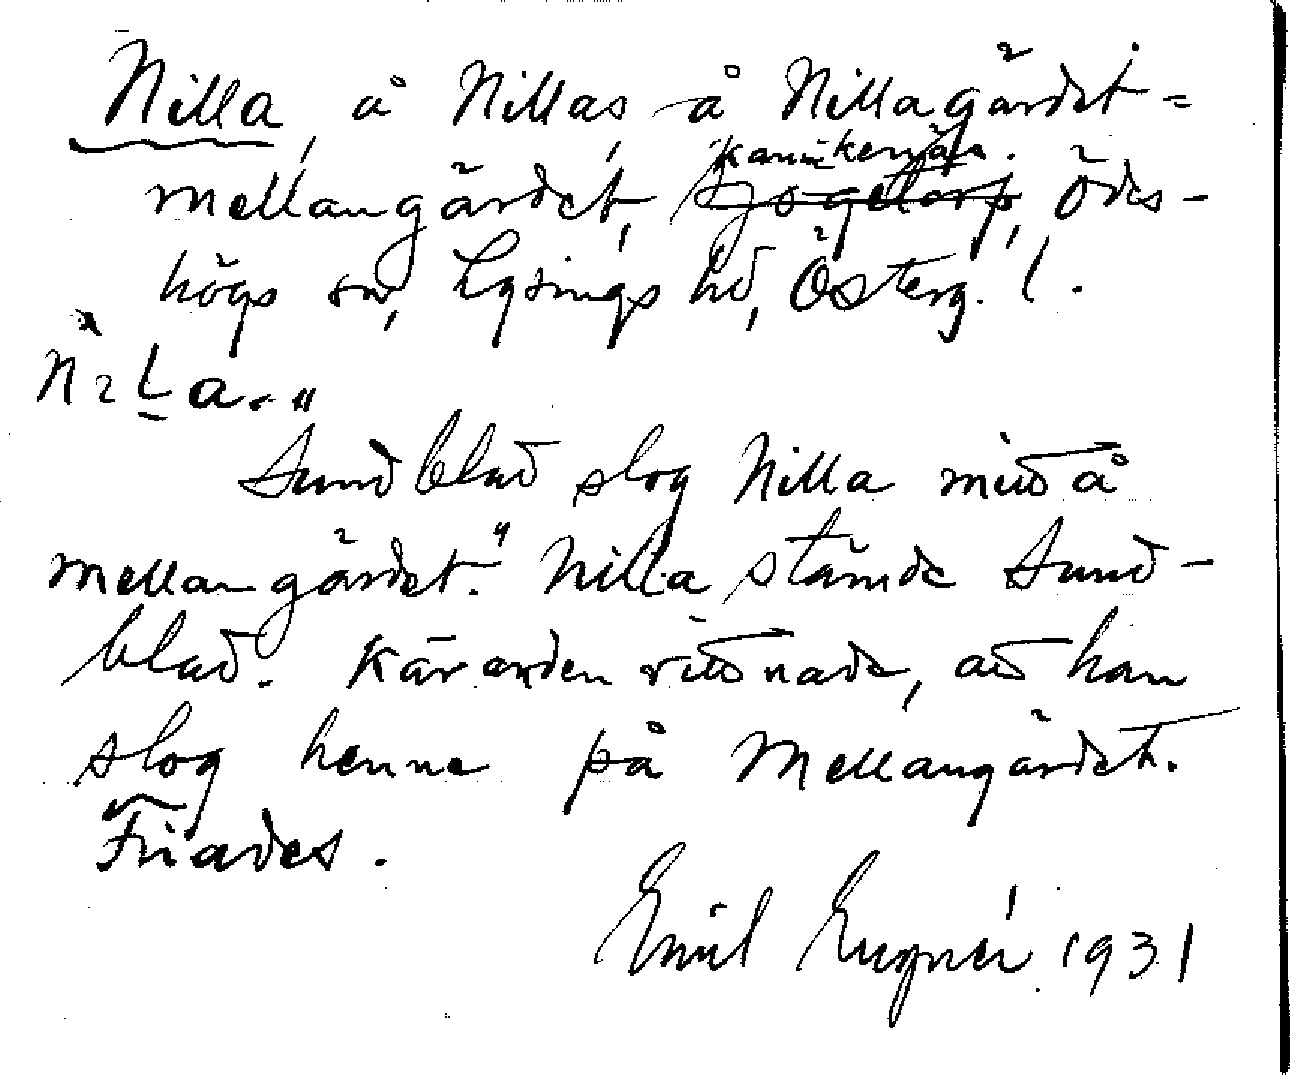 Nilla, å Nillas, å Nillagärdet =
mellangärdet, Kanickenjäs. Jogetorp, Ödes-
högs sn, Lysings hd, Österg. l.
Sundblad slog Nilla mitt å
mellangärdet." Nilla stämde Sund-
blad. Käranden vittnade, att han
slog henne på Mellangärdet.
Friades.
Emil 1931